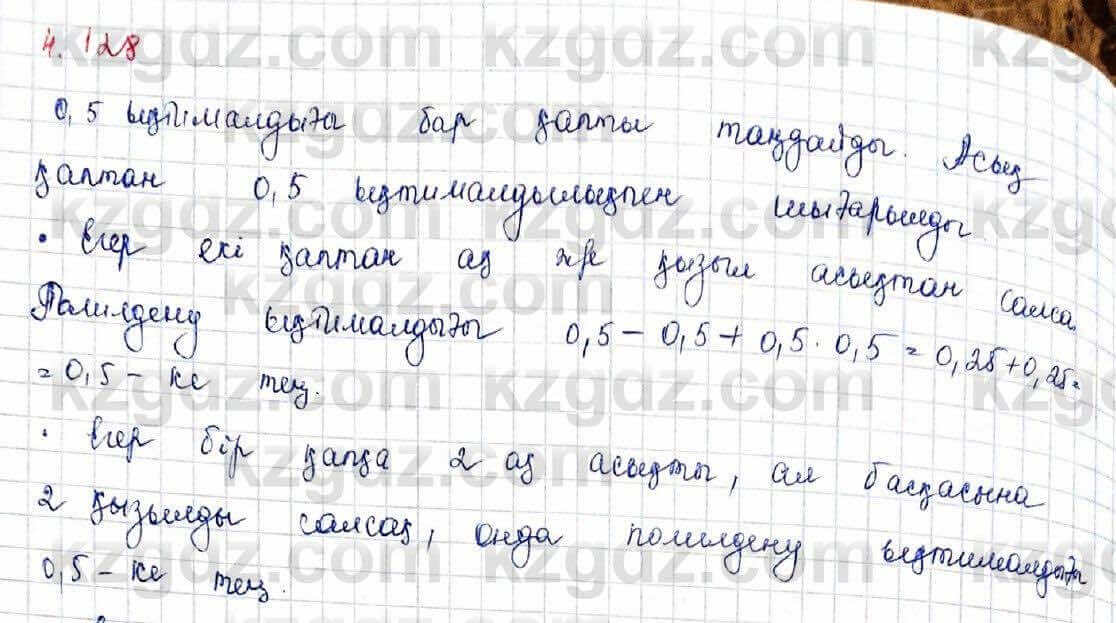 4.128
0,5 ықтималдығы бар қапты таңдайды. Асық
қаптан 0,5 ықтималдылықпен шығарылды
• Егер екі қаптан ақ және қызыл асықтан салса.
Помилдену ықтималдығы 0,5 - 0,5 + 0,5 · 0,5 = 0,25 + 0,25 =
= 0,5 - ке тең.
• Егер бір қапқа 2 ақ асықты, ал басқасына
2 қызылды салсақ, онда помилдену ықтималдығы
0,5 - ке тең.
kzgdz.com